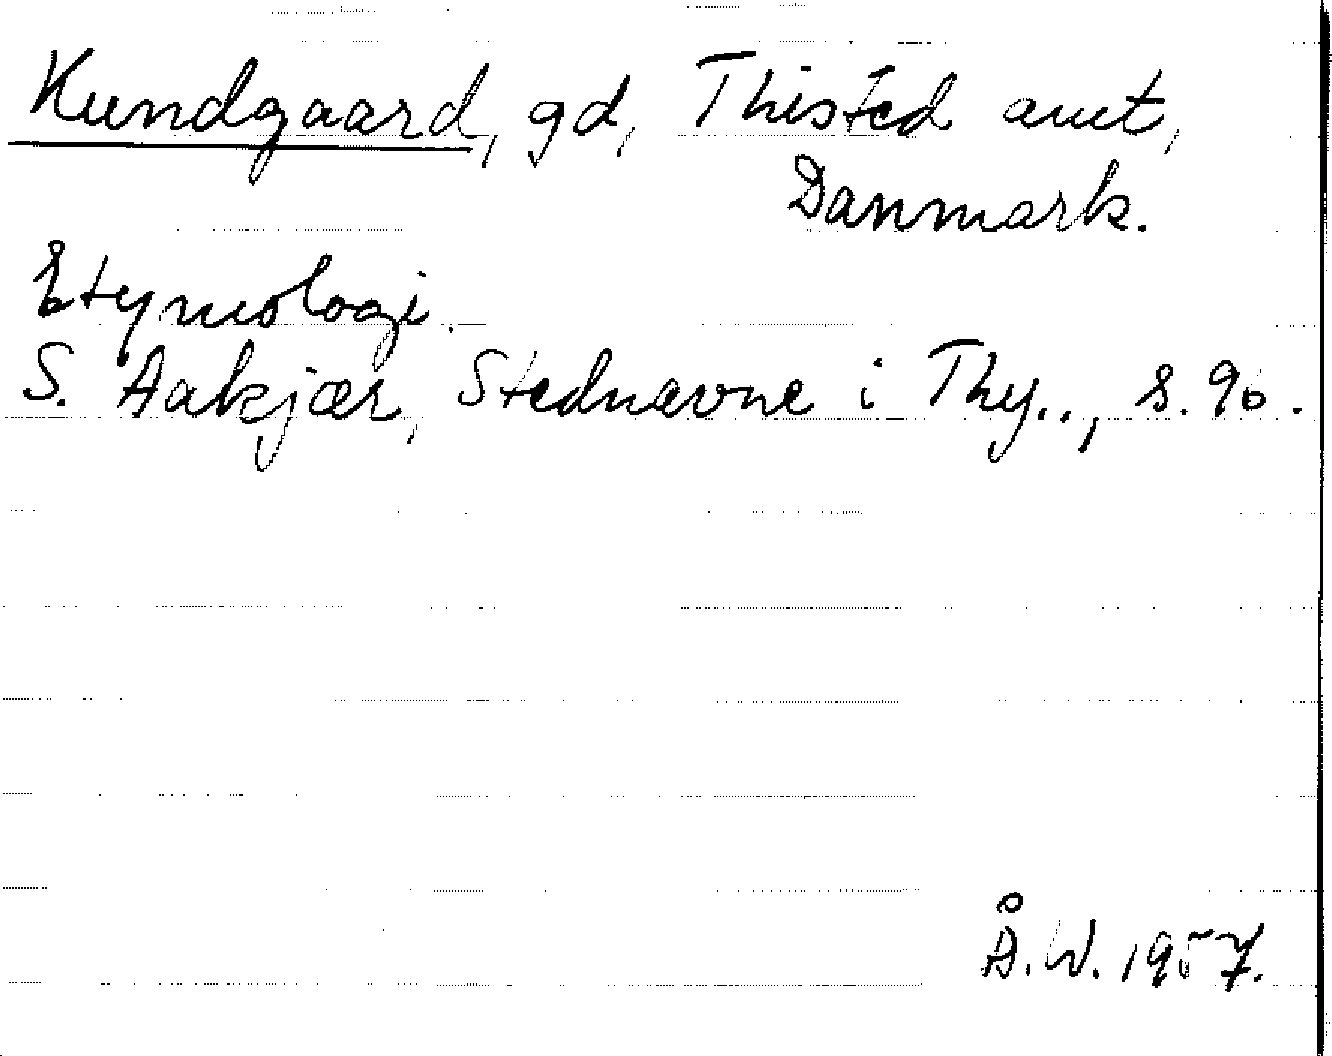 Kundgaard, gd, Thisted amt,
Danmark.
Etymologi.
S. Aakjær, Stednavne i Thy.., s. 96.
Å.W. 1957.